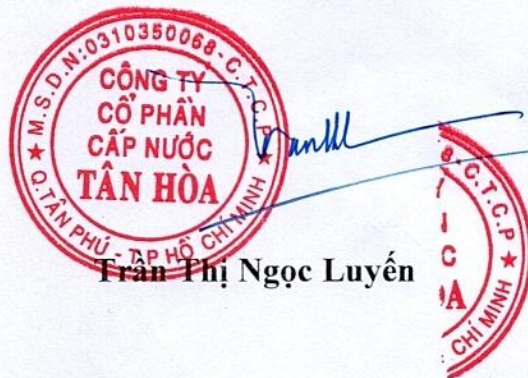 M.S.D.N:0310350068-C.T.C.P
CÔNG TY
CỔ PHẦN
CẤP NƯỚC
TÂN HÒA
Q.TÂN PHÚ - T.P HỒ CHÍ MINH
Trần Thị Ngọc Luyến
C.T.C.P
C
A
CHÍ MINH